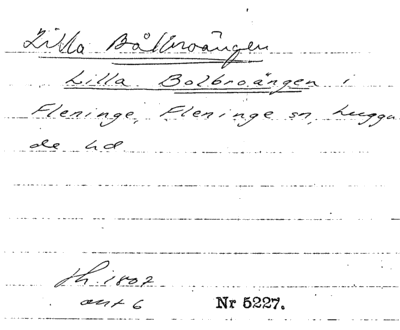 Lilla Bålbroängen
Lilla Bolbroängen i
Fleninge, Fleninge sn, Luggu
de hd
1807
akt 6 Nr 5227.